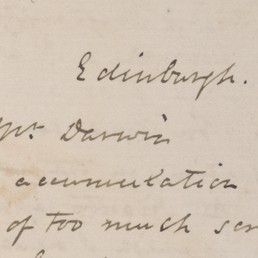 Edinburgh.
Mr. Darwin
accumulation
of too much